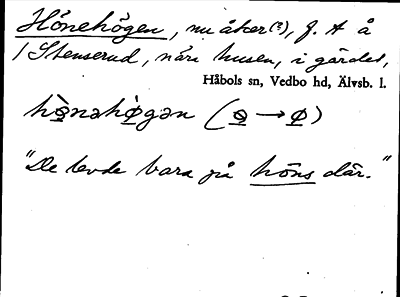 Hönehögen, nu åker(?), f. A å
/ Stenserud, nära husen, i gärdet,
Håbols sn, Vedbo hd, Älvsb. l.
"De levde bara på höns där."